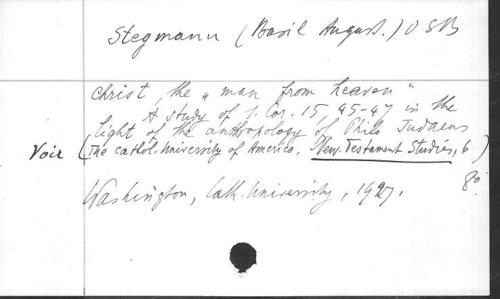 Stegmann (Basil August.) OSB
Christ, the "man from heaven"
A study of I. Cor. 15, 45-47 in the
light of the anthropology of Philo Judaeus
Voir (The cathol. University of America. New. Testament Studies, 6)
Washington, Cath. University, 1927. 8°